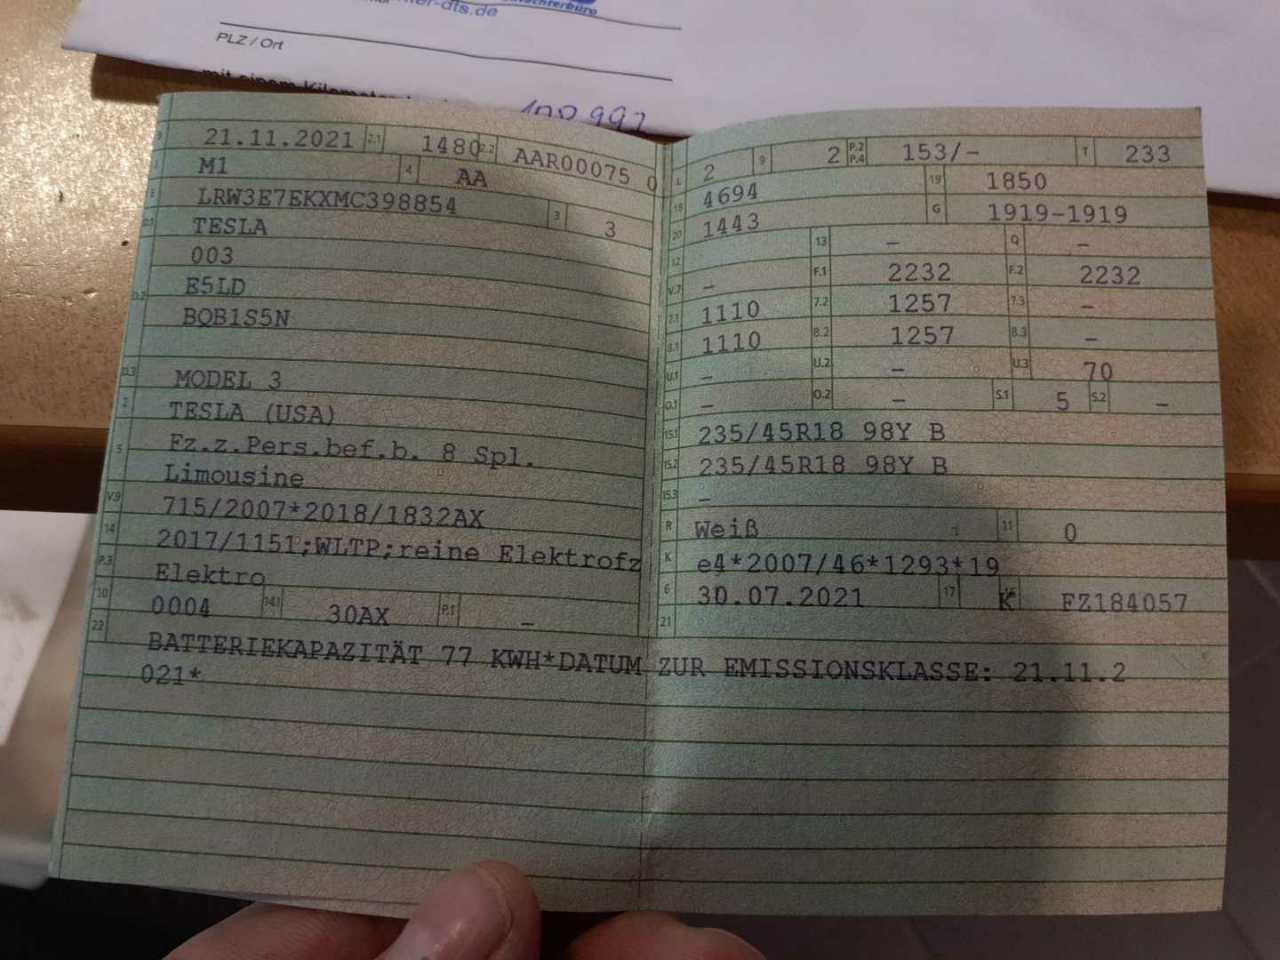 PLZ / Ort
mit einem
21.11.2021 2.1 1480 2.2 AAR00075 0
M1 4 AA
LRW3E7EKXMC398854 3 3
TESLA
003
E5LD
BQB1S5N
D.3 MODEL 3
2 TESLA (USA)
5 Fz.z.Pers.bef.b. 8 Spl.
Limousine
V.9 715/2007*2018/1832AX
14 2017/1151;WLTP;reine Elektrofz
P.3 Elektro
10 0004 14.1 30AX P.1 –
L 2 9 2 P.2 P.4 153/- T 233
18 4694 19 1850
20 1443 G 1919-1919
12 – 13 – Q –
V.7 – F.1 2232 F.2 2232
7.1 1110 7.2 1257 7.3 –
8.1 1110 8.2 1257 8.3 –
U.1 – U.2 – U.3 70
O.1 – O.2 – S.1 5 S.2 –
15.1 235/45R18 98Y B
15.2 235/45R18 98Y B
15.3 –
R Weiß 11 0
K e4*2007/46*1293*19
6 30.07.2021 17 K FZ184057
21
22 BATTERIEKAPAZITÄT 77 KWH*DATUM ZUR EMISSIONSKLASSE: 21.11.2
021*